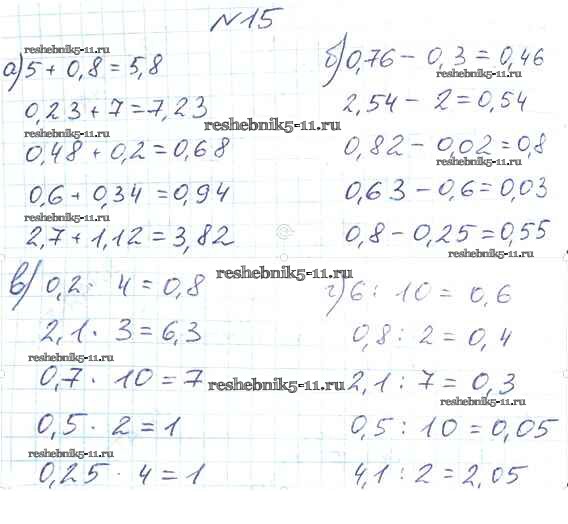 №15
reshebnik5-11.ru
а) 5 + 0,8 = 5,8
0,23 + 7 = 7,23
reshebnik5-11.ru
0,48 + 0,2 = 0,68
0,6 + 0,34 = 0,94
reshebnik5-11.ru
2,7 + 1,12 = 3,82
б) 0,76 - 0,3 = 0,46
reshebnik5-11.ru
2,54 - 2 = 0,54
reshebnik5-11.ru
0,82 - 0,02 = 0,8
reshebnik5-11.ru
0,63 - 0,6 = 0,03
0,8 - 0,25 = 0,55
reshebnik5-11.ru
reshebnik5-11.ru
в) 0,2 · 4 = 0,8
2,1 · 3 = 6,3
reshebnik5-11.ru
0,7 · 10 = 7
reshebnik5-11.ru
0,5 · 2 = 1
reshebnik5-11.ru
0,25 · 4 = 1
г) 6 : 10 = 0,6
0,8 : 2 = 0,4
2,1 : 7 = 0,3
reshebnik5-11.ru
0,5 : 10 = 0,05
4,1 : 2 = 2,05